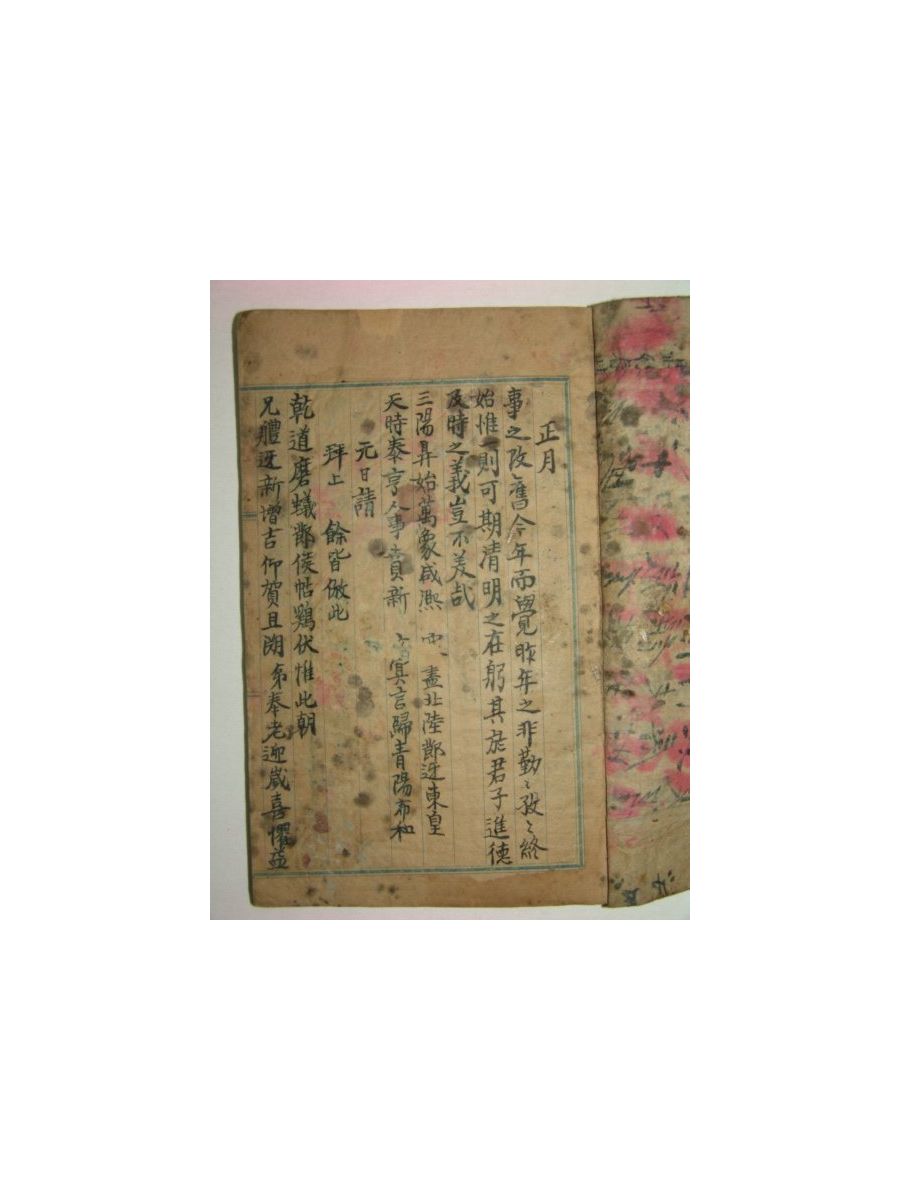 正月
事之改舊今年而覺昨年之非勤〻孜〻終
始惟一則可期清明之在躬其於君子進德
及時之義豈不美哉
三陽昇始萬象咸熙 盡北陸鄒迓東皇
天時泰亨人事賁新 冥言歸青陽布和
元日請
拜上 餘皆倣此
乾道磨蟻鄒侯帖鷄伏惟此朝
兄軆迓新增吉仰賀且溯弟奉老迎歲喜懼並